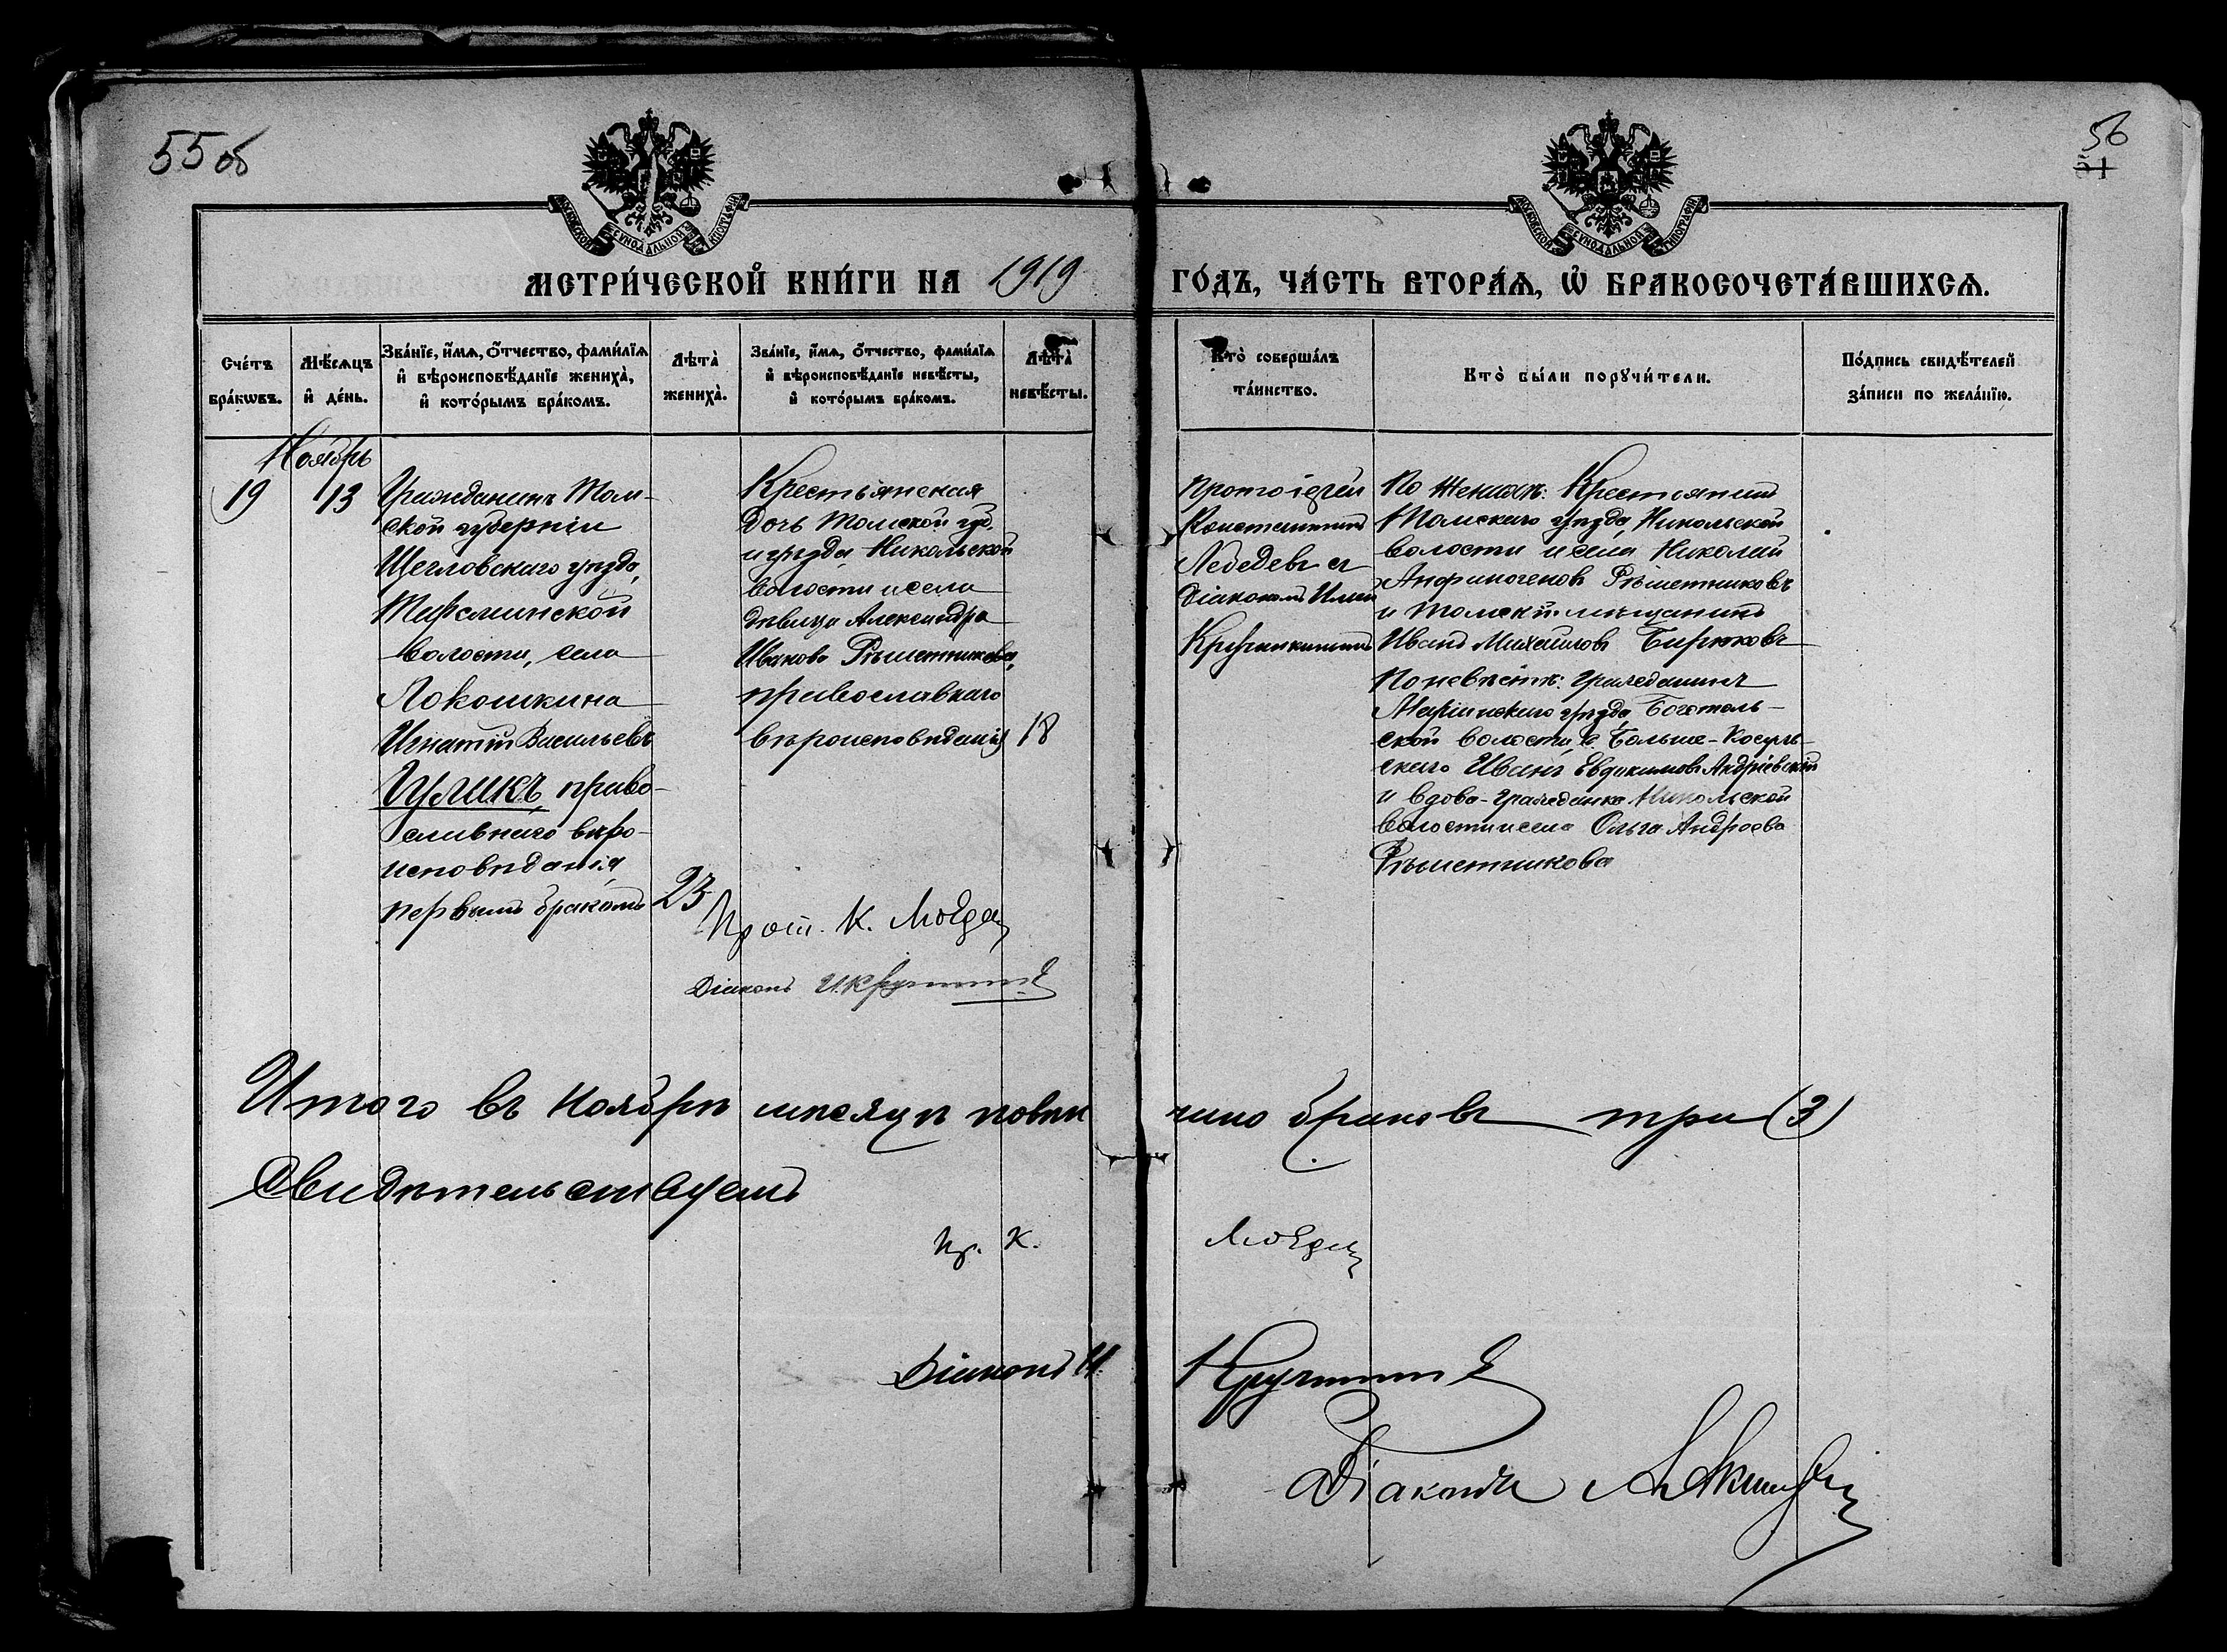 55 об
56
51
МОСКОВСКОЙ СѴНОДАЛЬНОЙ ТИПОГРАФІИ
МОСКОВСКОЙ СѴНОДАЛЬНОЙ ТИПОГРАФІИ
МЕТРИ́ЧЕСКОЙ КНИ́ГИ НА 1919 ГО́ДЪ, ЧА́СТЬ ВТОРА́Ѧ, Ѡ҆ БРАКОСОЧЕТА́ВШИХСѦ.
Сче́тъ бра́кѡвъ.
Мѣ́сѧцъ и҆ де́нь.
Зва́нїе, и҆́мѧ, ѻ҆́тчество, фами́лїѧ и҆ вѣроисповѣ́данїе жениха̀, и҆ кото́рымъ бра́комъ.
Лѣ́та̀ жениха̀.
Зва́нїе, и҆́мѧ, ѻ҆́тчество, фами́лїѧ и҆ вѣроисповѣ́данїе невѣ́сты, и҆ кото́рымъ бра́комъ.
Лѣ́та̀ невѣ́сты.
Кто̀ соверша́лъ та́инство.
Кто̀ бы́ли порꙋчи́тели.
По́дпись свидѣ́телей за́писи по жела́нїю.
Ноябрь
19
13
Гражданинъ Том-
ской губерніи
Щегловскаго уѣзда,
волости, села
Локошкина
Игнатій Васильевъ
Цуликъ, право-
славнаго вѣро-
исповѣданія,
первымъ бракомъ
23
Крестьянская
дочь Томской губ.
и уѣзда, Никольской
волости и села
дѣвица Александра
Иванова Рѣшетникова,
православнаго
вѣроисповѣданія
18
Протоіерей
Константинъ
Лебедевъ съ
діакономъ
По женихѣ: Крестьянинъ
Томскаго уѣзда, Никольской
волости и села Николай
Анфиногеновъ Рѣшетниковъ
и Томскій мѣщанинъ
Иванъ Михайловъ Бирюковъ
По невѣстѣ: гражданинъ
Маріинскаго уѣзда, Боготоль-
ской волости, с. Больше-Косуль-
скаго Иванъ Евдокимовъ Андріевскій
и вдова-гражданка Никольской
волости и села Ольга Андреева
Рѣшетникова
Прот. К. Лебедев
Діаконъ И.
Итого въ Ноябрѣ мѣсяцѣ повѣн чано браковъ три (3)
Свидѣтельствуемъ
Пр. К. Лебедев
Діаконъ И.
Діаконъ